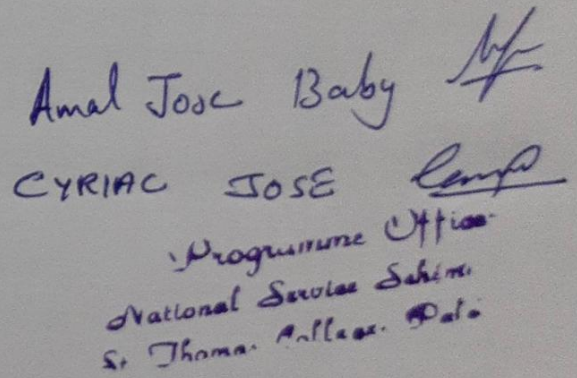 Amal Jose Baby
CYRIAC JOSE
Programme Officer
National Service Scheme
St. Thomas College, Pala